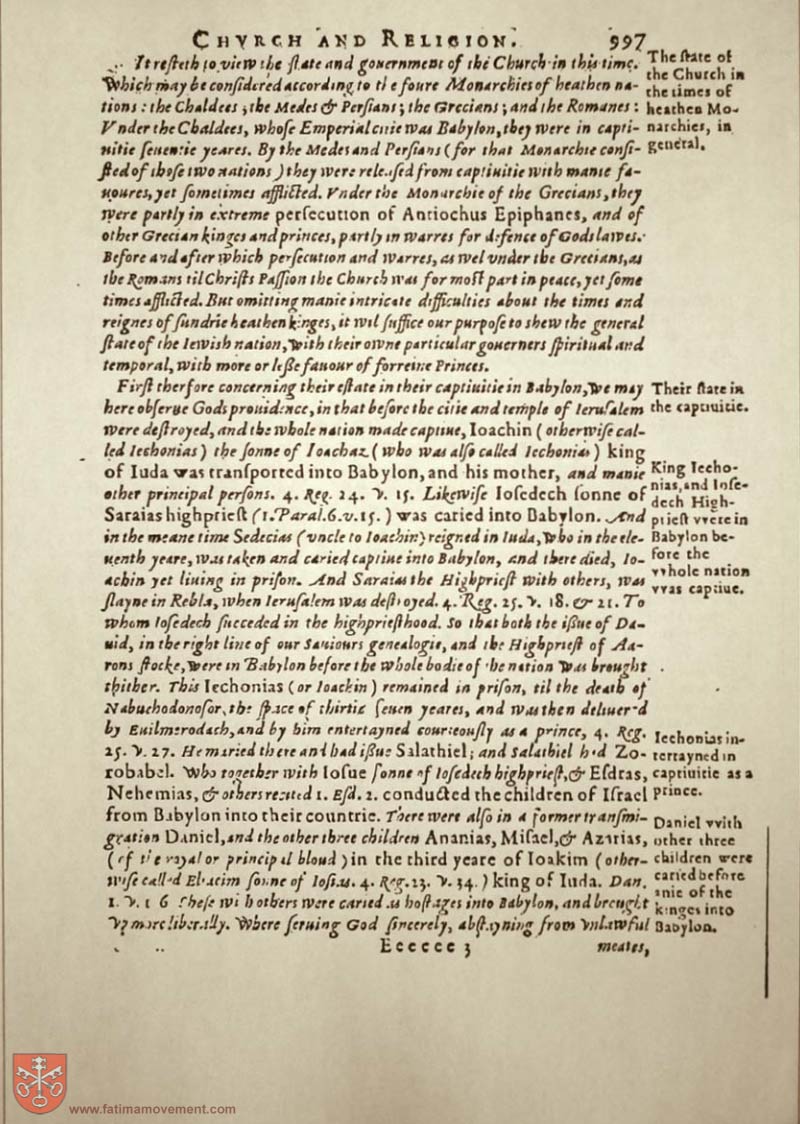 CHVRCH AND RELIGION. 997
It resteth to view the state and gouernment of the Church in this time.
Which may be considered according to the foure Monarchies of heathen na-
tions: the Chaldees; the Medes & Persians; the Grecians; and the Romanes:
Vnder the Chaldees, whose Emperial citie was Babylon, they were in capti-
uitie seuentie yeares. By the Medes and Persians (for that Monarchie consi-
sted of those two nations) they were released from captiuitie with manie fa-
uoures, yet sometimes afflicted. Vnder the Monarchie of the Grecians, they
were partly in extreme persecution of Antiochus Epiphanes, and of
other Grecian kinges and princes, partly in warres for defence of Gods lawes.
Before and after which persecution and warres, as wel vnder the Grecians, as
the Romans til Christs Passion the Church was for most part in peace, yet some
times afflicted. But omitting manie intricate difficulties about the times and
reignes of sundrie heathen kinges, it wil suffice our purpose to shew the general
state of the Iewish nation, with their owne particular gouerners spiritual and
temporal, with more or lesse fauour of forreine Princes.
First therfore concerning their estate in their captiuitie in Babylon, we may
here obserue Gods prouidence, in that before the citie and temple of Ierusalem
were destroyed, and the whole nation made captiue, Ioachin (otherwise cal-
led Iechonias) the sonne of Ioachaz (who was also called Iechonias) king
of Iuda was transported into Babylon, and his mother, and manie
other principal persons. 4. Reg. 24. v. 15. Likewise Iosedech sonne of
Saraias highpriest (1. Paral. 6. v. 15.) was caried into Babylon. And
in the meane time Sedecias (vncle to Ioachin) reigned in Iuda, who in the ele-
uenth yeare, was taken and caried captiue into Babylon, and there died, Io-
achin yet liuing in prison. And Saraias the Highpriest with others, was
slayne in Rebla, when Ierusalem was destroyed. 4. Reg. 25. v. 18. & 21. To
whom Iosedech succeded in the highpriesthood. So that both the issue of Da-
uid, in the right line of our Sauiours genealogie, and the Highpriest of Aa-
rons stocke, were in Babylon before the whole bodie of the nation was brought
thither. This Iechonias (or Ioachin) remained in prison, til the death of
Nabuchodonosor, the space of thirtie seuen yeares, and was then deliuered
by Euilmerodach, and by him entertayned courteously as a prince, 4. Reg.
25. v. 27. He maried there and had issue Salathiel; and Salathiel had Zo-
robabel. Who together with Iosue sonne of Iosedech highpriest, & Esdras,
Nehemias, & others recited 1. Esd. 2. conducted the children of Israel
from Babylon into their countrie. There were also in a former transmi-
gration Daniel, and the other three children Ananias, Misael, & Azarias,
(of the royal or principal bloud) in the third yeare of Ioakim (other-
wise called Eliacim sonne of Iosias. 4. Reg. 23. v. 34.) king of Iuda. Dan.
1. v. 1. 6 These with others were caried as hostages into Babylon, and brought
vp more liberally. Where seruing God sincerely, abstayning from vnlawful
Eeeeee 3 meates,
The state of
the Church in
the times of
heathen Mo-
narchies, in
general.
Their state in
the captiuitie.
King Iecho-
nias, and Iose-
dech High-
priest vvere in
Babylon be-
fore the
vvhole nation
vvas captiue.
Iechonias in-
tertayned in
captiuitie as a
prince.
Daniel vvith
other three
children were
caried before
anie of the
kinges into
Babylon.
www.fatimamovement.com